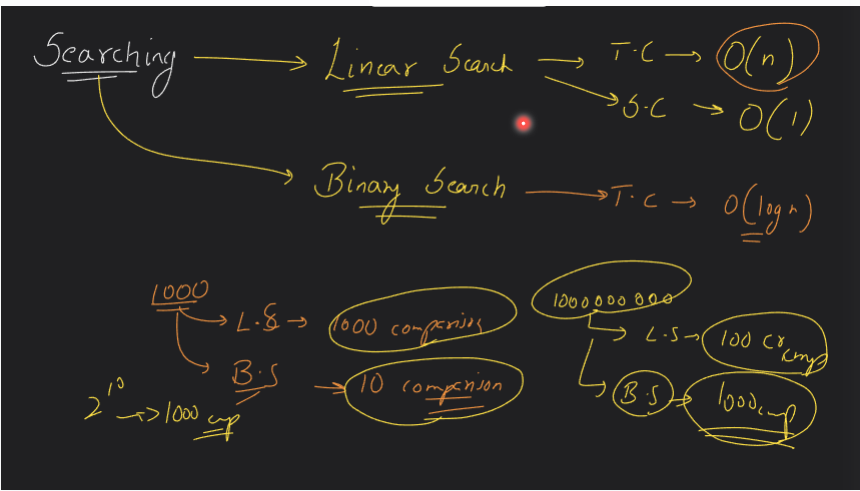 Searching → Linear Search → T.C → O(n)
→ S.C → O(1)
Binary Search → T.C → O(log n)
1000
L.S → 1000 comparison
B.S → 10 comparison
2^10 → 1000 cmp
1000000000
L.S → 100 cr cmp
B.S → 1000 cmp